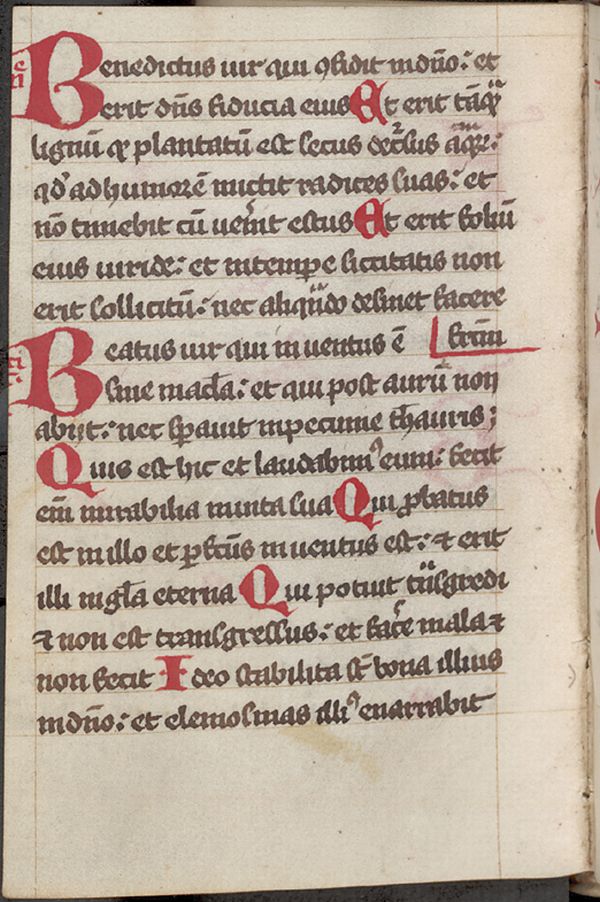 Benedictus uir qui ꝯfidit in dn̄o: et
erit dn̄s fiducia eius Et erit tāqͣ
lignū qͩ plantatū est secus decᷣsus aq̄rꝫ:
qd̓ ad humorē mictit radices suas: et
nō timebit cū uen̓it estus Et erit foliū
eius uiride: et in tempe siccitatis non
erit sollicitū: nec aliqͣndo desinet facere
Beatus uir qui inuentus ē fructū
sine macl̄a: et qui post aurū non
abijt: nec sp̄auit in pecunie th̄auris;
Quis est hic et laudabimꝰ eum: fecit
em̄ mirabilia in uita sua Qui ꝓbatus
est in illo et ꝑfectus inuentus est: ⁊ erit
illi in gl̄a eterna Qui potuit tͣnsgredi
⁊ non est transgressus: et fac̓e mala ⁊
non fecit Ideo stabilita st̄ bona illius
in dn̄o: et elemosinas illiꝰ enarrabit